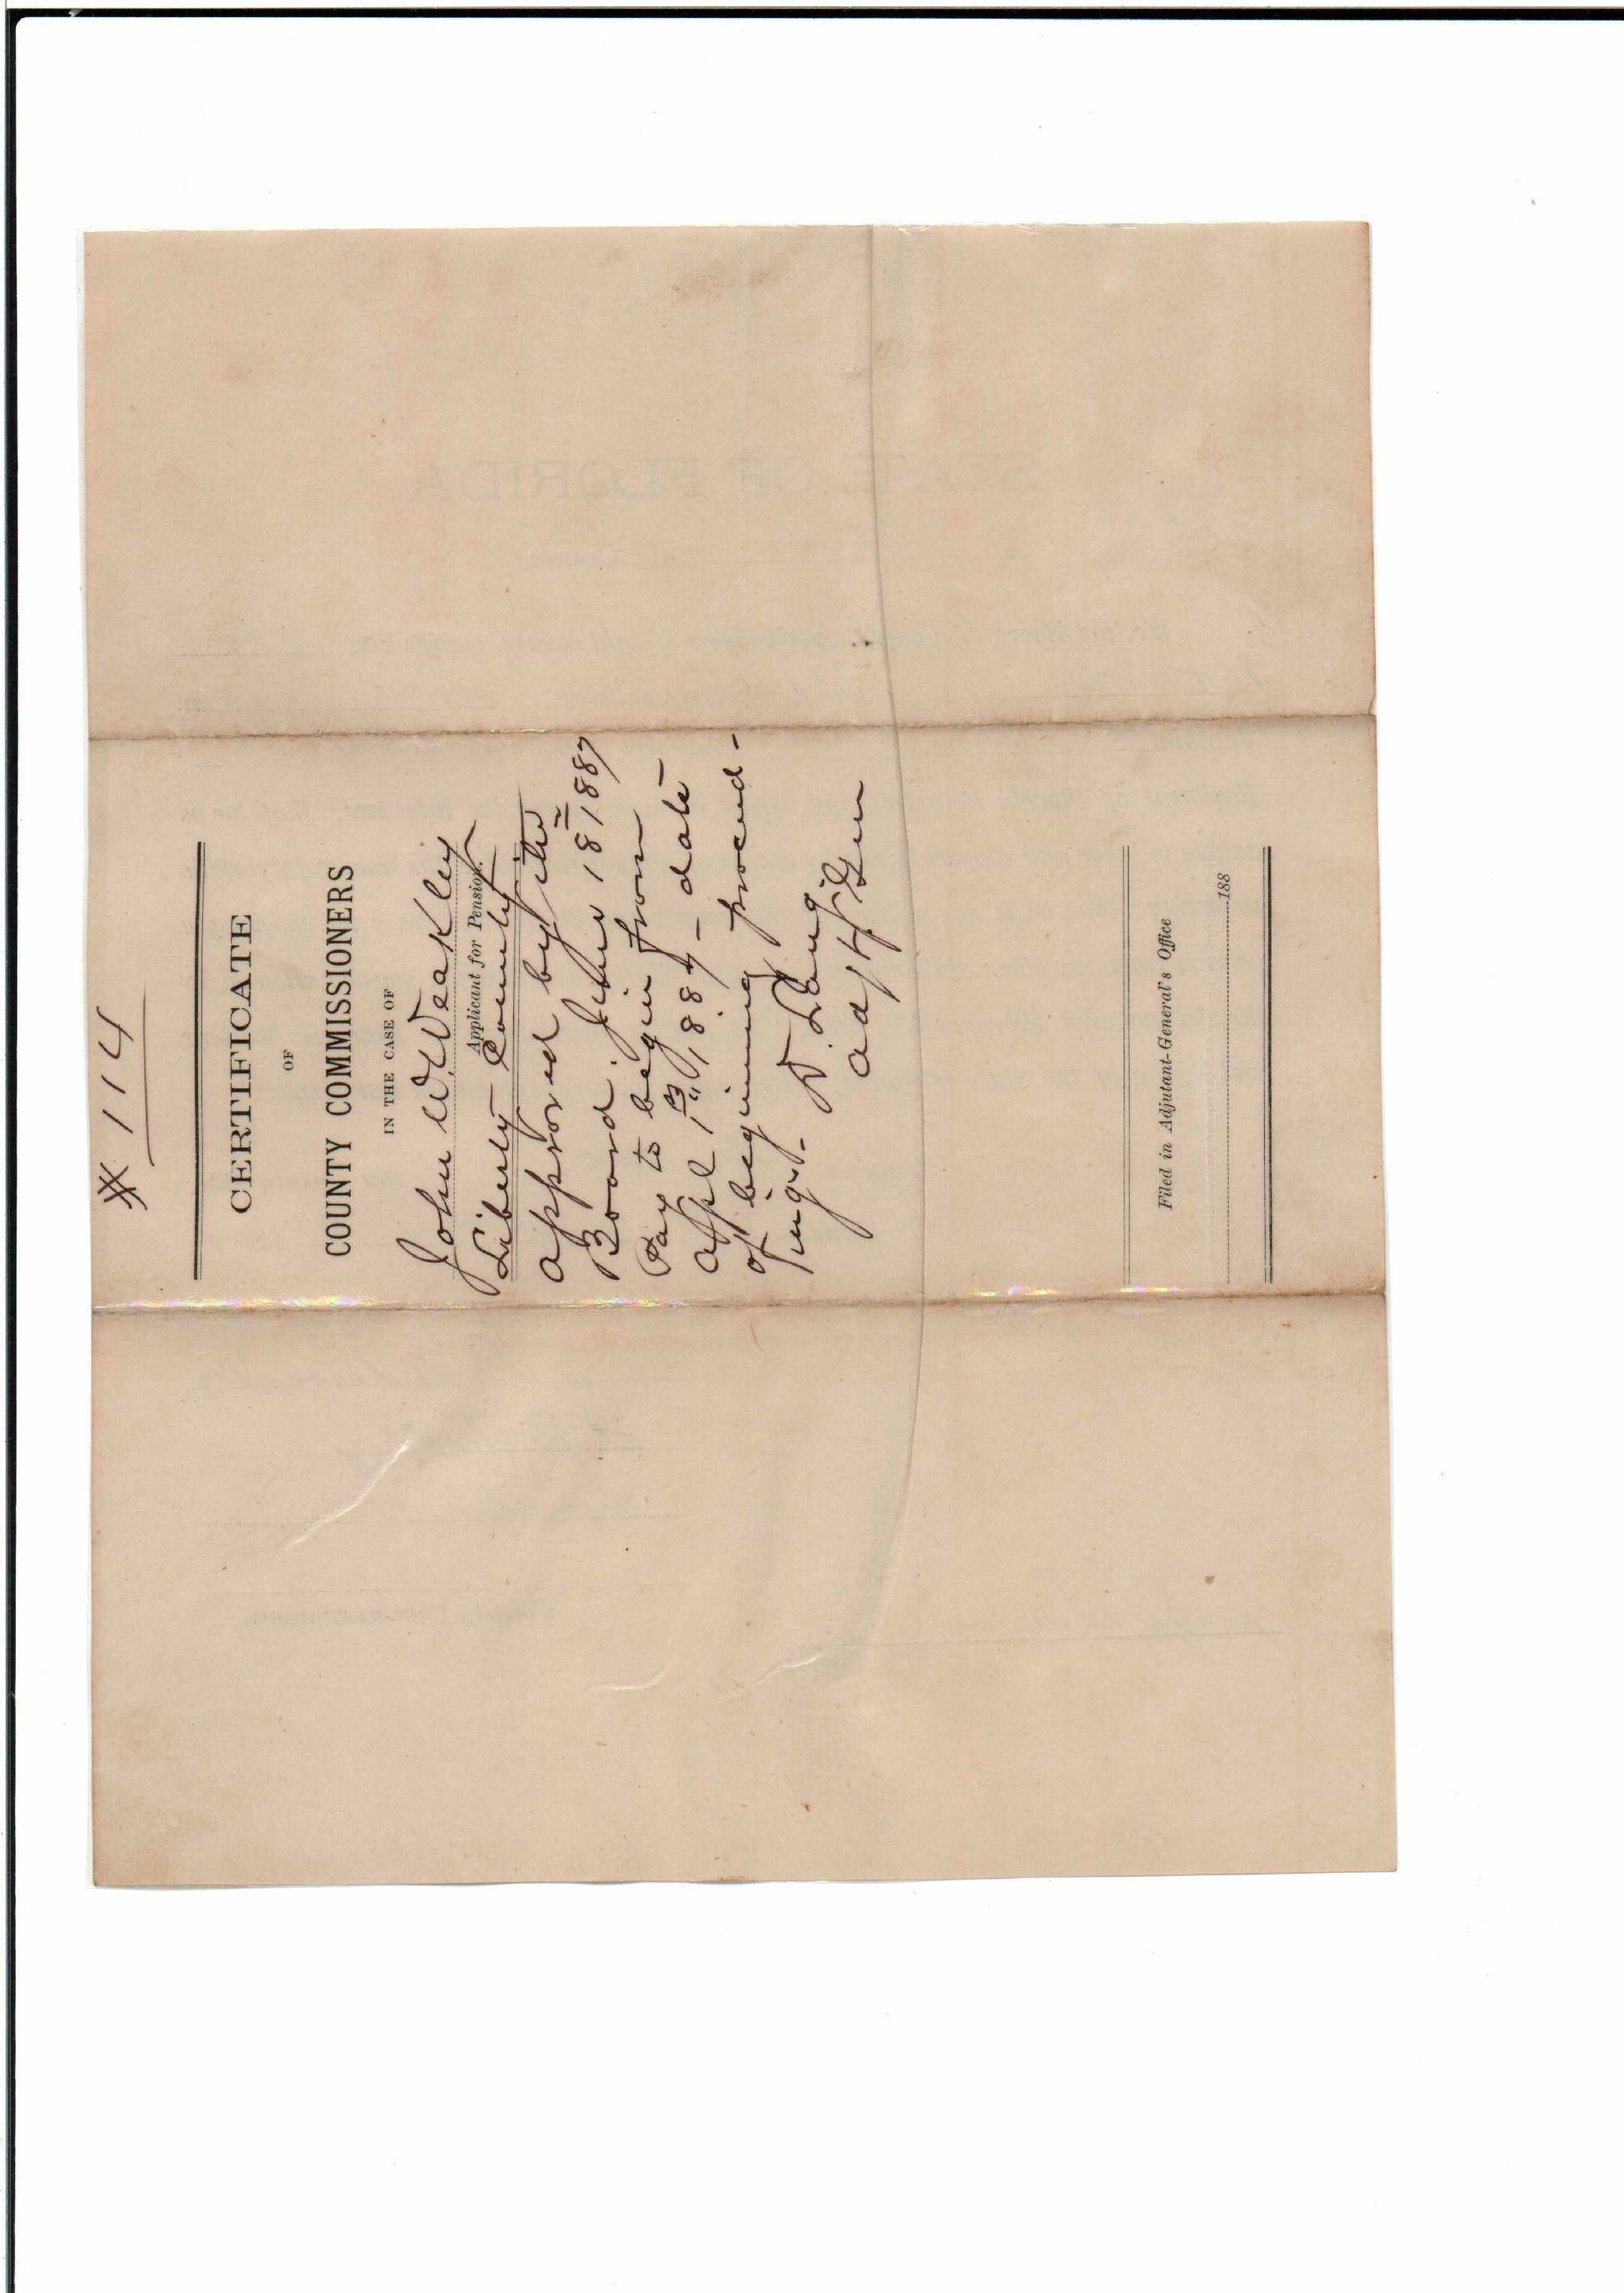 # 114
CERTIFICATE
OF
COUNTY COMMISSIONERS
IN THE CASE OF
John W. Weakley
Applicant for Pension.
Liberty County
approved by the
Board. June 18 1887
Pay to begin from
Apl 1st 1887 – date
of beginning proceed-
ings. D. Lang
Adjt Gen
Filed in Adjutant-General's Office
188
STATE OF FLORIDA